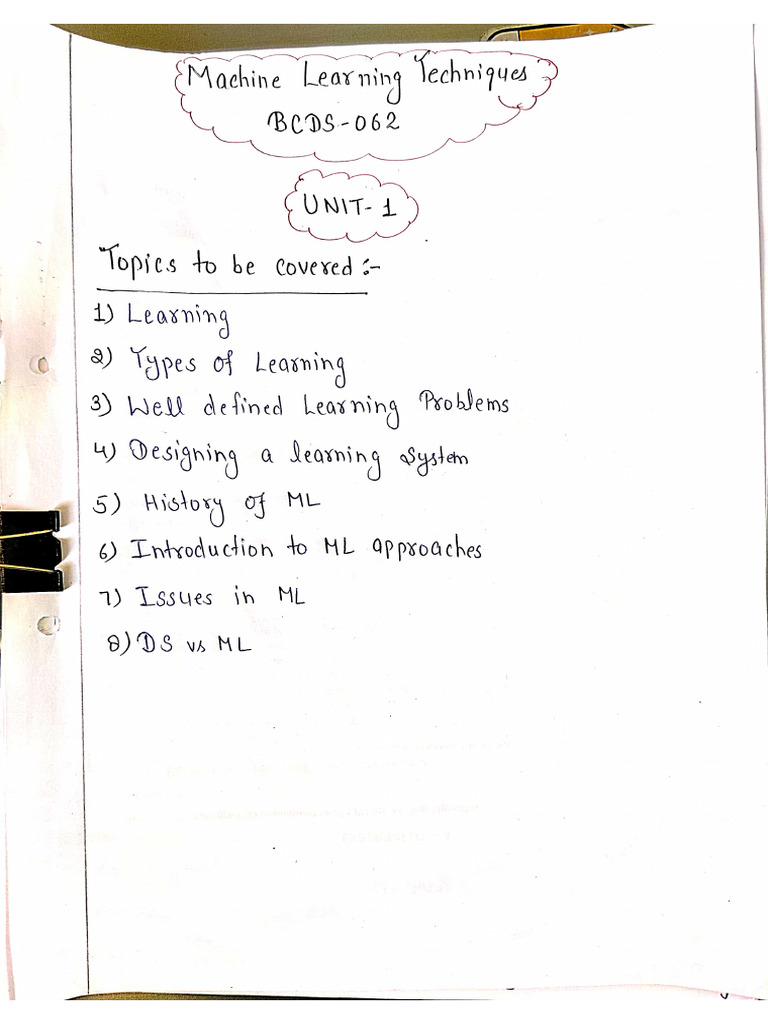 Machine Learning Techniques
BCDS-062
UNIT-1
Topics to be covered :-
1) Learning
2) Types of Learning
3) Well defined Learning Problems
4) Designing a learning System
5) History of ML
6) Introduction to ML approaches
7) Issues in ML
8) DS vs ML